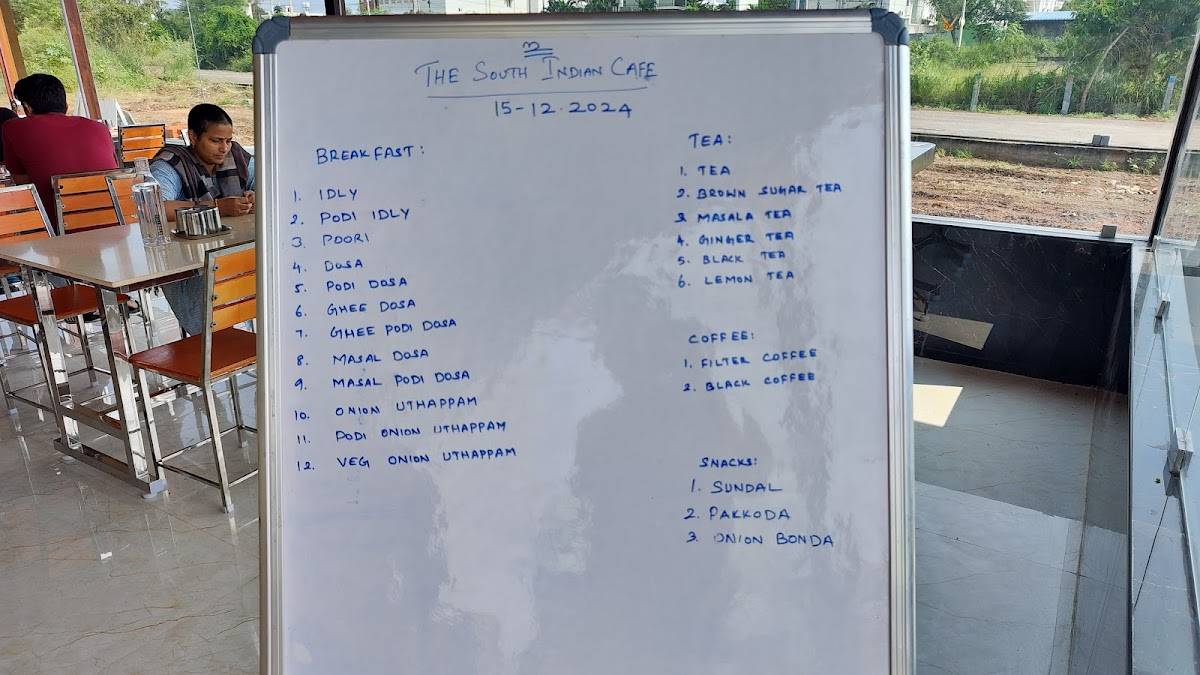 THE SOUTH INDIAN CAFE
15-12-2024
BREAKFAST:
1. IDLY
2. PODI IDLY
3. POORI
4. DOSA
5. PODI DOSA
6. GHEE DOSA
7. GHEE PODI DOSA
8. MASAL DOSA
9. MASAL PODI DOSA
10. ONION UTHAPPAM
11. PODI ONION UTHAPPAM
12. VEG ONION UTHAPPAM
TEA:
1. TEA
2. BROWN SUGAR TEA
3. MASALA TEA
4. GINGER TEA
5. BLACK TEA
6. LEMON TEA
COFFEE:
1. FILTER COFFEE
2. BLACK COFFEE
SNACKS:
1. SUNDAL
2. PAKKODA
3. ONION BONDA